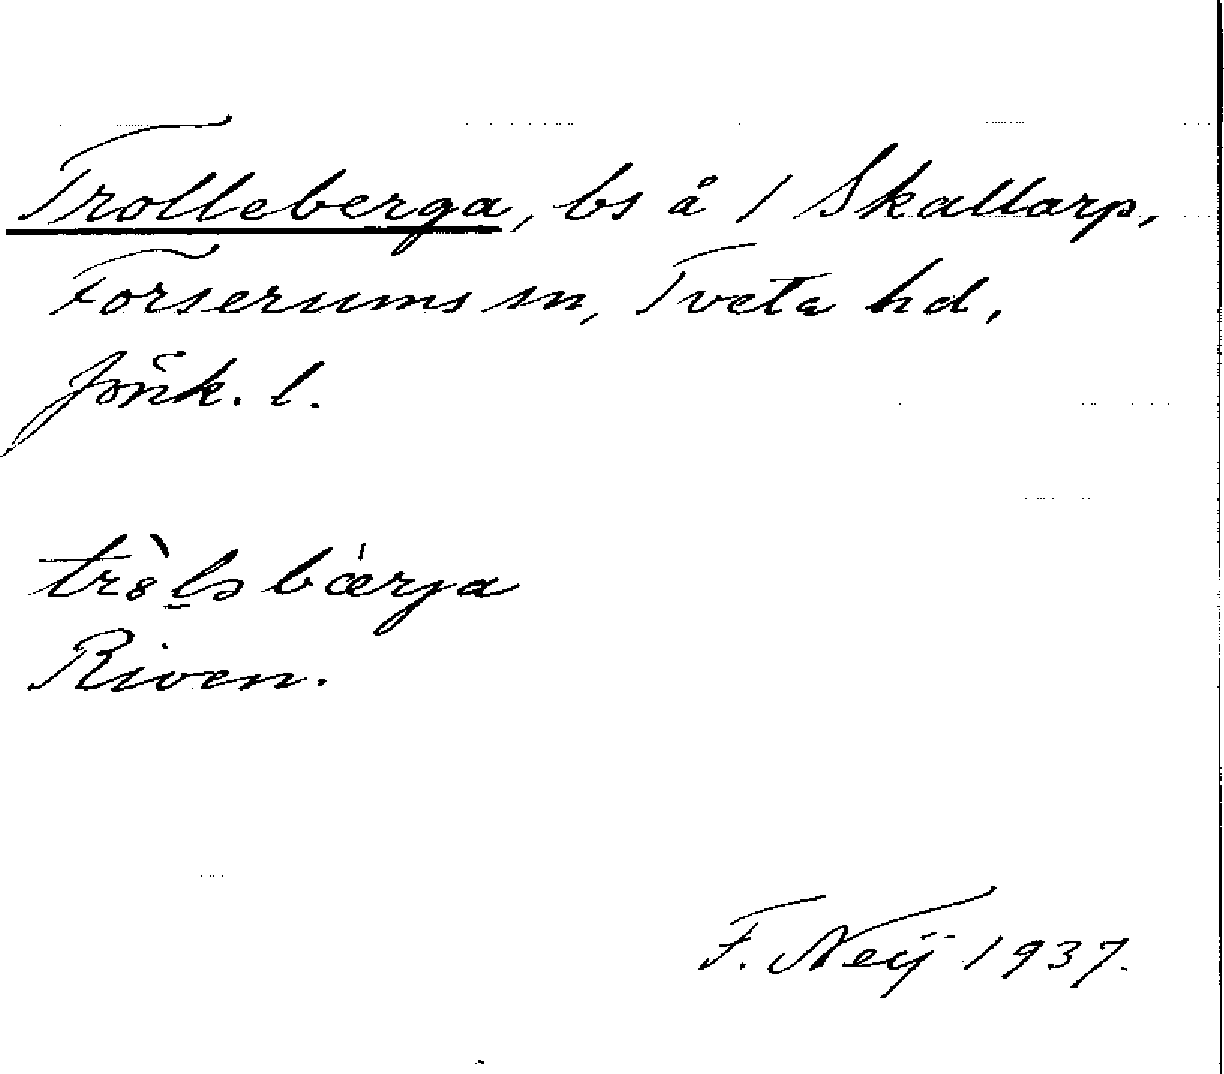 Trolleberga, bs å 1 Skallarp,
Forserums sn, Tveta hd,
Jönk. l.
bærja
Riven.
F. Neij 1937.